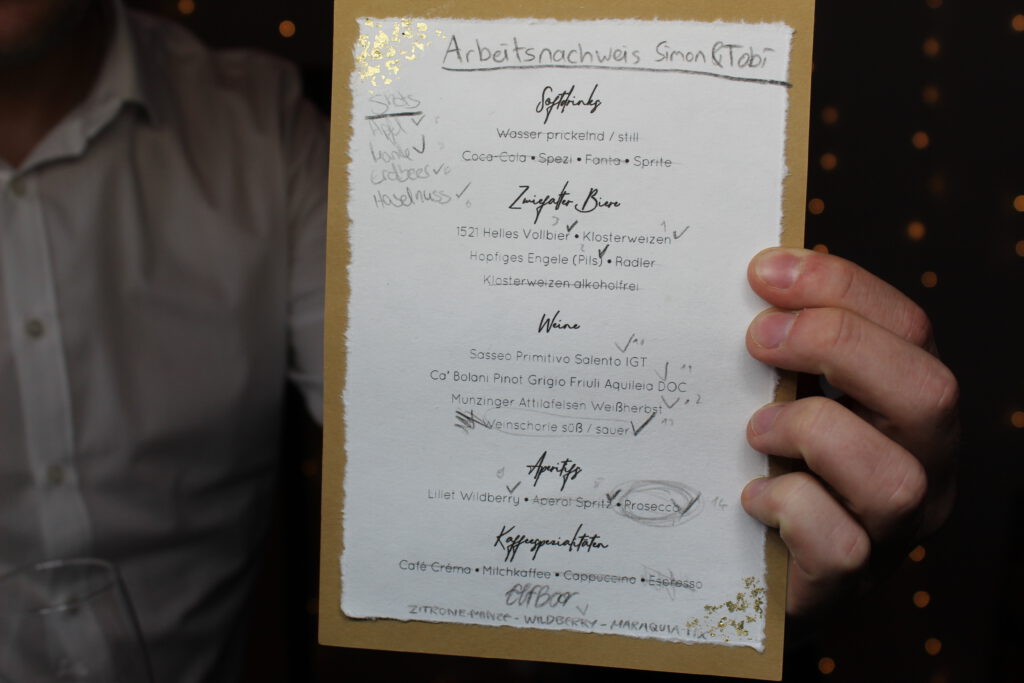 Arbeitsnachweis Simon & Tobi
Shots
Apfl
Erdbeer
Haselnuss
Softdrinks
Wasser prickelnd / still
Coca-Cola • Spezi • Fanta • Sprite
Zwiefalter Biere
3 1
1521 Helles Vollbier • Klosterweizen
2
Hopfiges Engele (Pils) • Radler
Klosterweizen alkoholfrei
Weine
Sasseo Primitivo Salento IGT
Ca' Bolani Pinot Grigio Friuli Aquileia DOC
Munzinger Attilafelsen Weißherbst
Weinschorle süß / sauer
Aperitifs
Lillet Wildberry • Aperol Spritz • Prosecco 14
Kaffeespezialitäten
Café Créma • Milchkaffee • Cappuccino • Espresso
ElfBar
WILDBERRY - MARAQUIA